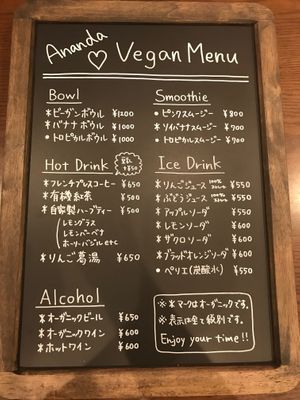 Ananda ♡ Vegan Menu
Bowl
＊ビーガンボウル ¥1200
＊バナナボウル ¥1000
・トロピカルボウル ¥1000
Smoothie
・ピンクスムージー ¥800
＊ソイバナナスムージー ¥700
・トロピカルスムージー ¥700
Hot Drink
＊フレンチプレスコーヒー ¥650
＊有機紅茶 ¥500
＊自家製ハーブティー ¥500
レモングラス
レモンバーベナ
ホーリーバジル etc
＊りんご葛湯 ¥650
Ice Drink
＊りんごジュース 100%ストレート ¥550
＊ぶどうジュース 100%ストレート ¥550
＊アップルソーダ ¥550
＊レモンソーダ ¥600
＊ザクロソーダ ¥600
＊ブラッドオレンジソーダ ¥600
・ペリエ(炭酸水) ¥550
Alcohol
＊オーガニックビール ¥650
＊オーガニックワイン ¥600
＊ホットワイン ¥600
※＊マークはオーガニックです。
※表示は全て税別です。
Enjoy your time!!